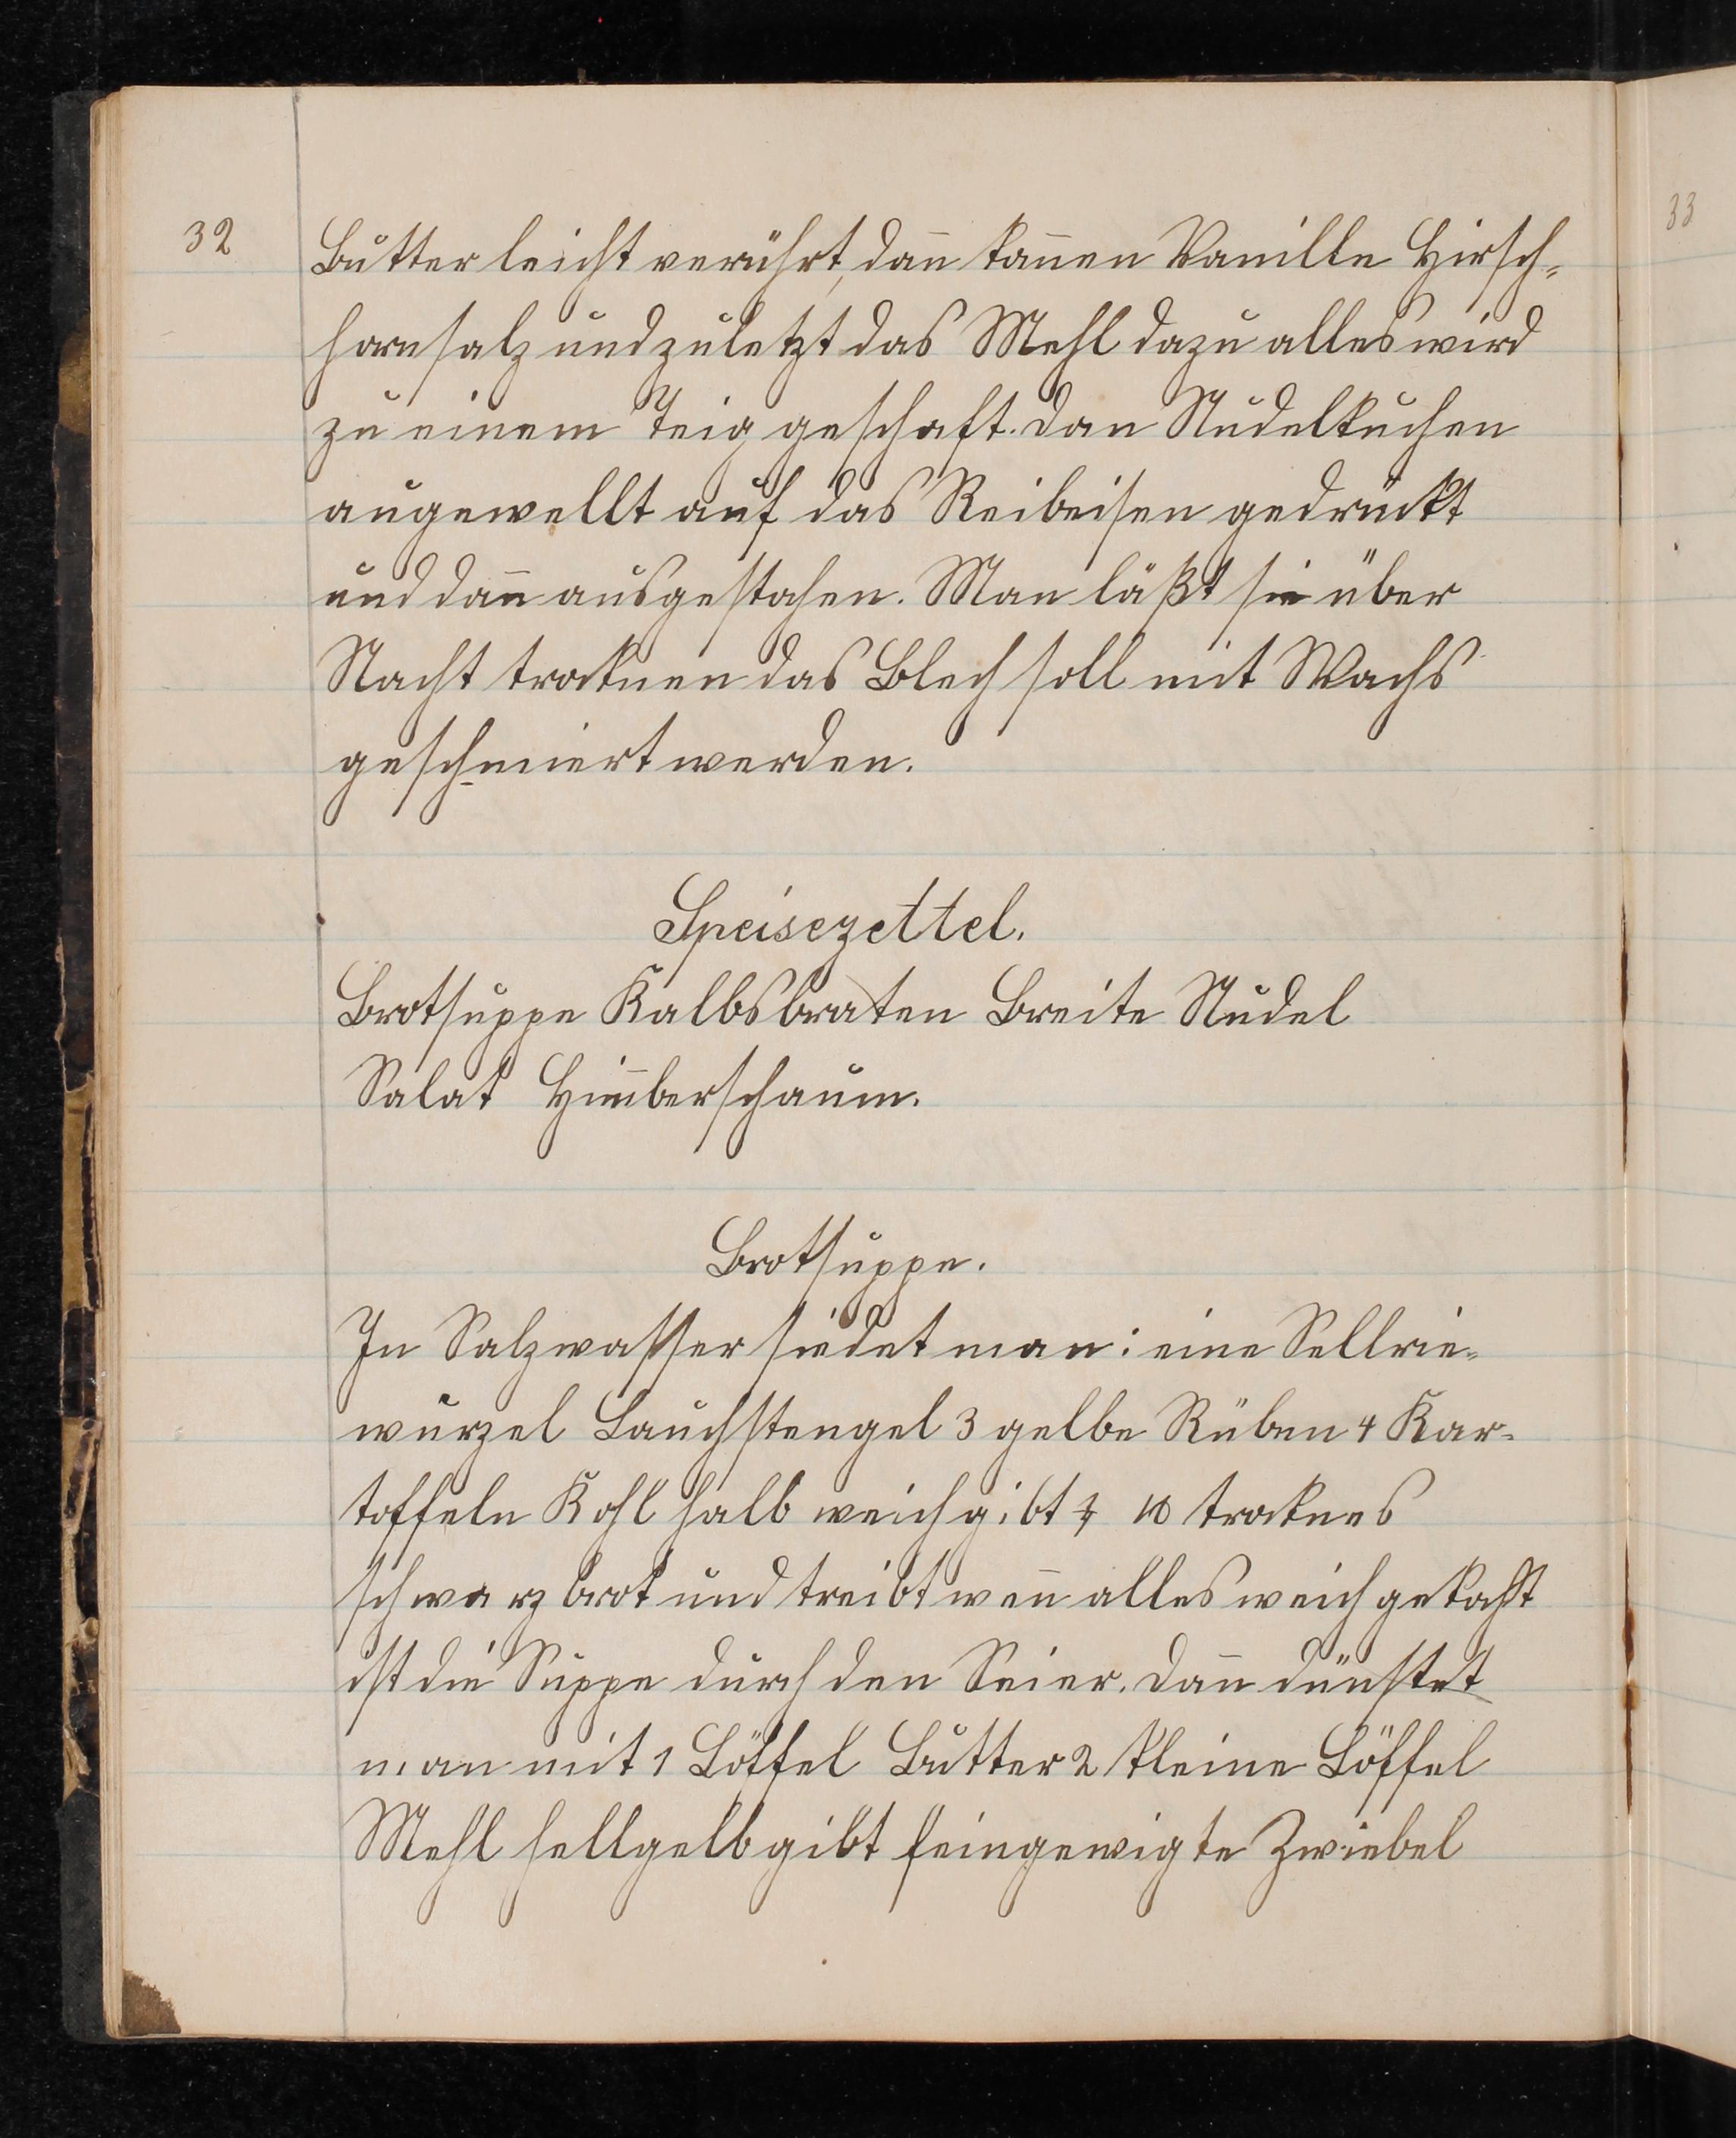 32
Butter leicht verrührt, dan̄ kom̄en Vanille Hirsch-
hornsalz und zuletzt das Mehl dazu alles wird
zu einem Teig geschaft. dan Nudelkuchen
augewellt auf das Reibeisen gedrückt
und dan̄ ausgestochen. Man läßt sie über
Nacht troknen das Blech soll mit Wachs
geschmiert werden.
Speisezettel.
Brotsuppe Kalbsbraten Breite Nudel
Salat Him̄berschaum.
Brotsuppe.
In Salzwasser siedet man: eine Sellrie-
wurzel Lauchstengel 3 gelbe Rüben 4 Kar-
toffeln Kohl halb weich gibt troknes
schwarzbrot und treibt wen̄ alles weich gekocht
ist die Suppe durch den Seier. Dan̄ dünstet
man mit 1 Löffel Butter 2 kleine Löffel
Mehl hellgelb gibt feingewigte Zwiebel
33